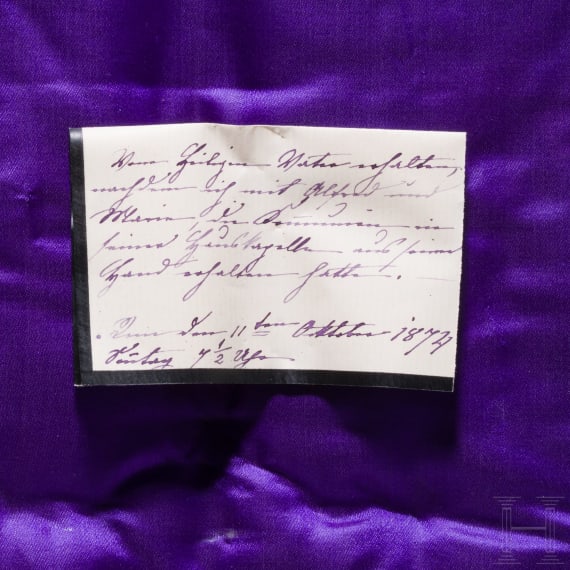 Vom Heiligen Vater erhalten,
nachdem ich mit Alfred und
Marie, die Kommunion in
seiner Hauskapelle aus seiner
Hand erhalten hatte.
Rom den 11ten Oktober 1874
Sontag 7 1/2 Uhr
H